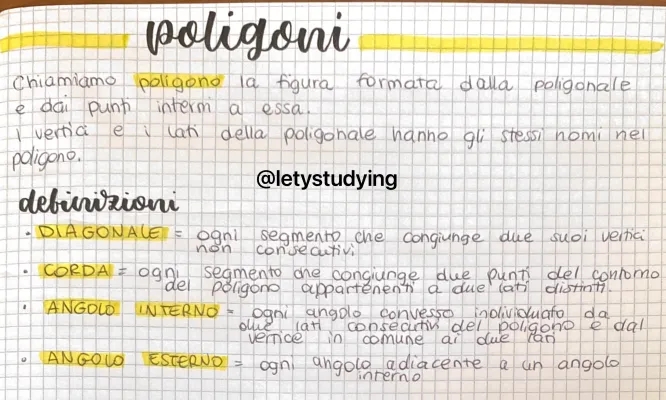 poligoni
Chiamiamo poligono la figura formata dalla poligonale
e dai punti interni a essa.
I vertici e i lati della poligonale hanno gli stessi nomi nel
poligono.
@letystudying
definizioni
• DIAGONALE = ogni segmento che congiunge due suoi vertici
non consecutivi
• CORDA = ogni segmento che congiunge due punti del contorno
del poligono appartenenti a due lati distinti.
• ANGOLO INTERNO = ogni angolo convesso individuato da
due lati consecutivi del poligono e dal
vertice in comune ai due lati
• ANGOLO ESTERNO = ogni angolo adiacente a un angolo
interno